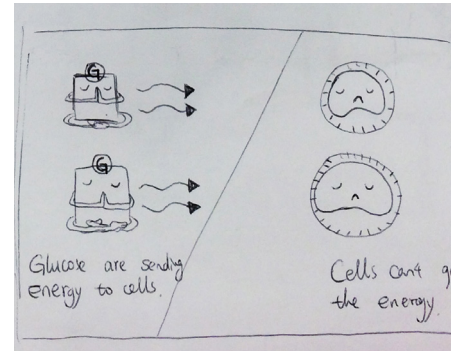 G
G
Glucose are sending
energy to cells.
Cells can't g
the energy.